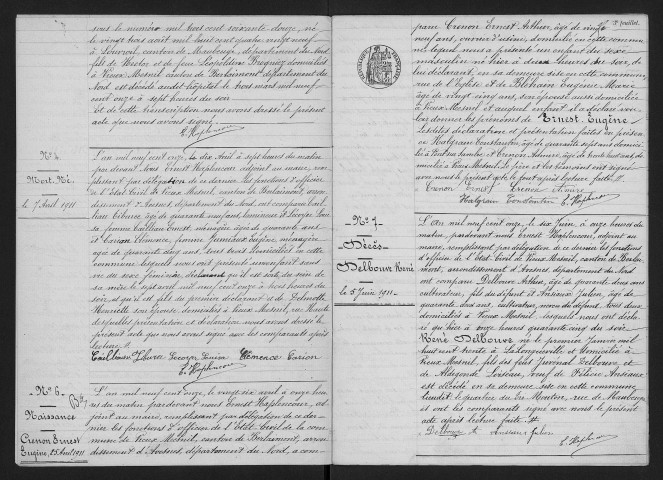 sous le numéro mil huit cent soixante douze, né
le vingt huit août mil huit cent quatre vingt neuf
à Louvroil, canton de Maubeuge, département du Nord
fils de et de feu Léopoldine domiciliés
à Vieux Mesnil canton de Berlaimont département du
Nord est décédé audit hôpital le trois mars mil neuf
cent onze à sept heures du soir
Et de cette transcription nous avons dressé le présent
acte que nous avons signé.
E. Haplincour
N° 5
Mort-Né
le 7 Avril 1911
L'an mil neuf cent onze, le dix Avril à sept heures du matin
par devant Nous Ernest Haplincour adjoint au maire, rem-
plissant par délégation de ce dernier les fonctions d'officier
de l'Etat Civil de Vieux Mesnil, canton de Berlaimont, arron-
dissement d'Avesnes, département du Nord, ont comparu Cail-
liau Tiburce, âgé de quarante neuf ans et Lecoyer Loui-
sa, femme Cailliau Ernest, ménagère, âgée de quarante ans
et Carion Clémence, femme Eugène, ménagère
âgée de quarante cinq ans, tous trois domiciliés en cette
commune lesquels nous ont présenté un enfant sans
vie du sexe féminin déclarant qu'il est sorti du sein de
sa mère le sept avril mil neuf cent onze à trois heures du
soir et qu'il est fils du premier déclarant et de Delmotte
Henriette son épouse, domiciliés à Vieux Mesnil, rue Haute
desquelles présentation et déclaration nous avons dressé le
présent acte que nous avons signé avec les comparants après
lecture
Cailliau Tiburce Lecoyer Louisa Clémence Carion
E. Haplincour
N° 6
Naissance
Crenon Ernest
Eugène, 25 Avril 1911
L'an mil neuf cent onze, le vingt six avril à onze heu-
res du matin pardevant nous Ernest Haplincour, ad-
joint au maire, remplissant par délégation de ce der-
nier les fonctions d'officier de l'Etat Civil de la com-
mune de Vieux Mesnil, canton de Berlaimont, arron-
dissement d'Avesnes, département du Nord, a com-
2e feuillet.
paru Crenon Ernest Arthur, âgé de vingt
neuf ans, ouvrier d'usine, domicilié en cette commu-
ne, lequel nous a présenté un enfant du sexe
masculin né hier à deux heures du soir, de
lui déclarant, en sa demeure sise en cette commune,
rue de l'Eglise et de Blehain Eugénie Maria
âgée de vingt cinq ans, son épouse aussi domiciliée
à Vieux Mesnil et auquel enfant il a déclaré vou-
loir donner les prénoms de Ernest, Eugène
Lesdites déclaration et présentation faites en présen-
ce Halgrain Constantin, âgé de quarante sept ans domici-
lié à Pont sur Sambre et Crenon Aimée, âgé de trente huit ans, do-
micilié à Vieux Mesnil. Le père et les témoins ont signé
avec nous le présent acte le tout après lecture faite
Crenon Ernest Crenon Aimée
Halgrain Constantin E. Haplincour
N° 7
Décès
Delbouve René
le 5 Juin 1911
L'an mil neuf cent onze, le six Juin, à onze heures du
matin, pardevant nous Ernest Haplincour, adjoint au
maire, remplissant par délégation de ce dernier les fonctions
d'officier de l'Etat Civil de Vieux Mesnil, canton de Berlai-
mont, arrondissement d'Avesnes département du Nord
ont comparu Delbouve Arthur, âgé de quarante deux ans
cultivateur, fils du défunt et Ansieaux Julien, âgé de
quarante deux ans, cultivateur, neveu du défunt, tous deux
domiciliés à Vieux Mesnil, lesquels nous ont décla-
ré qu'hier à onze heures quarante cinq du soir
René Delbouve né le premier Janvier mil
huit cent trente à Lalongueville et domicilié à
Vieux Mesnil, fils des feus Juvénal Delbouve, et
de Aldegonde Loiseau, veuf de Ansieaux
est décédé en sa demeure sise en cette commune
lieudit le quartier du Mouton, rue de Maubeuge
et ont les comparants signé avec nous le présent
acte après lecture faite
Delbouve A Ansieaux Julien
E. Haplincour